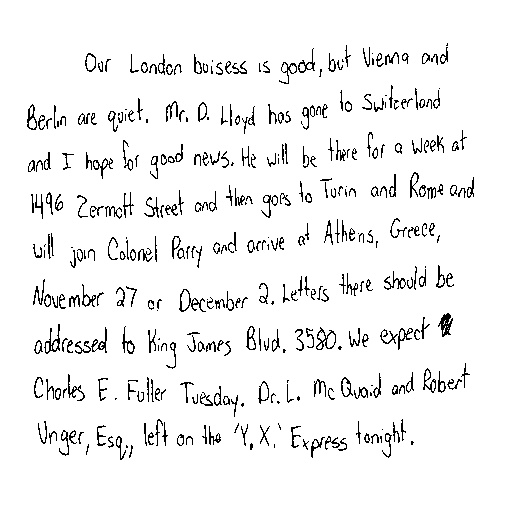 Our London buisess is good, but Vienna and
Berlin are quiet. Mr. D. Lloyd has gone to Switzerland
and I hope for good news. He will be there for a week at
1496 Zermott Street and then goes to Turin and Rome and
will join Colonel Parry and arrive at Athens, Greece,
November 27 or December 2. Letters there should be
addressed to King James Blvd. 3580. We expect
Charles E. Fuller Tuesday. Dr. L. McQuaid and Robert
Unger, Esq., left on the 'Y.X.' Express tonight.